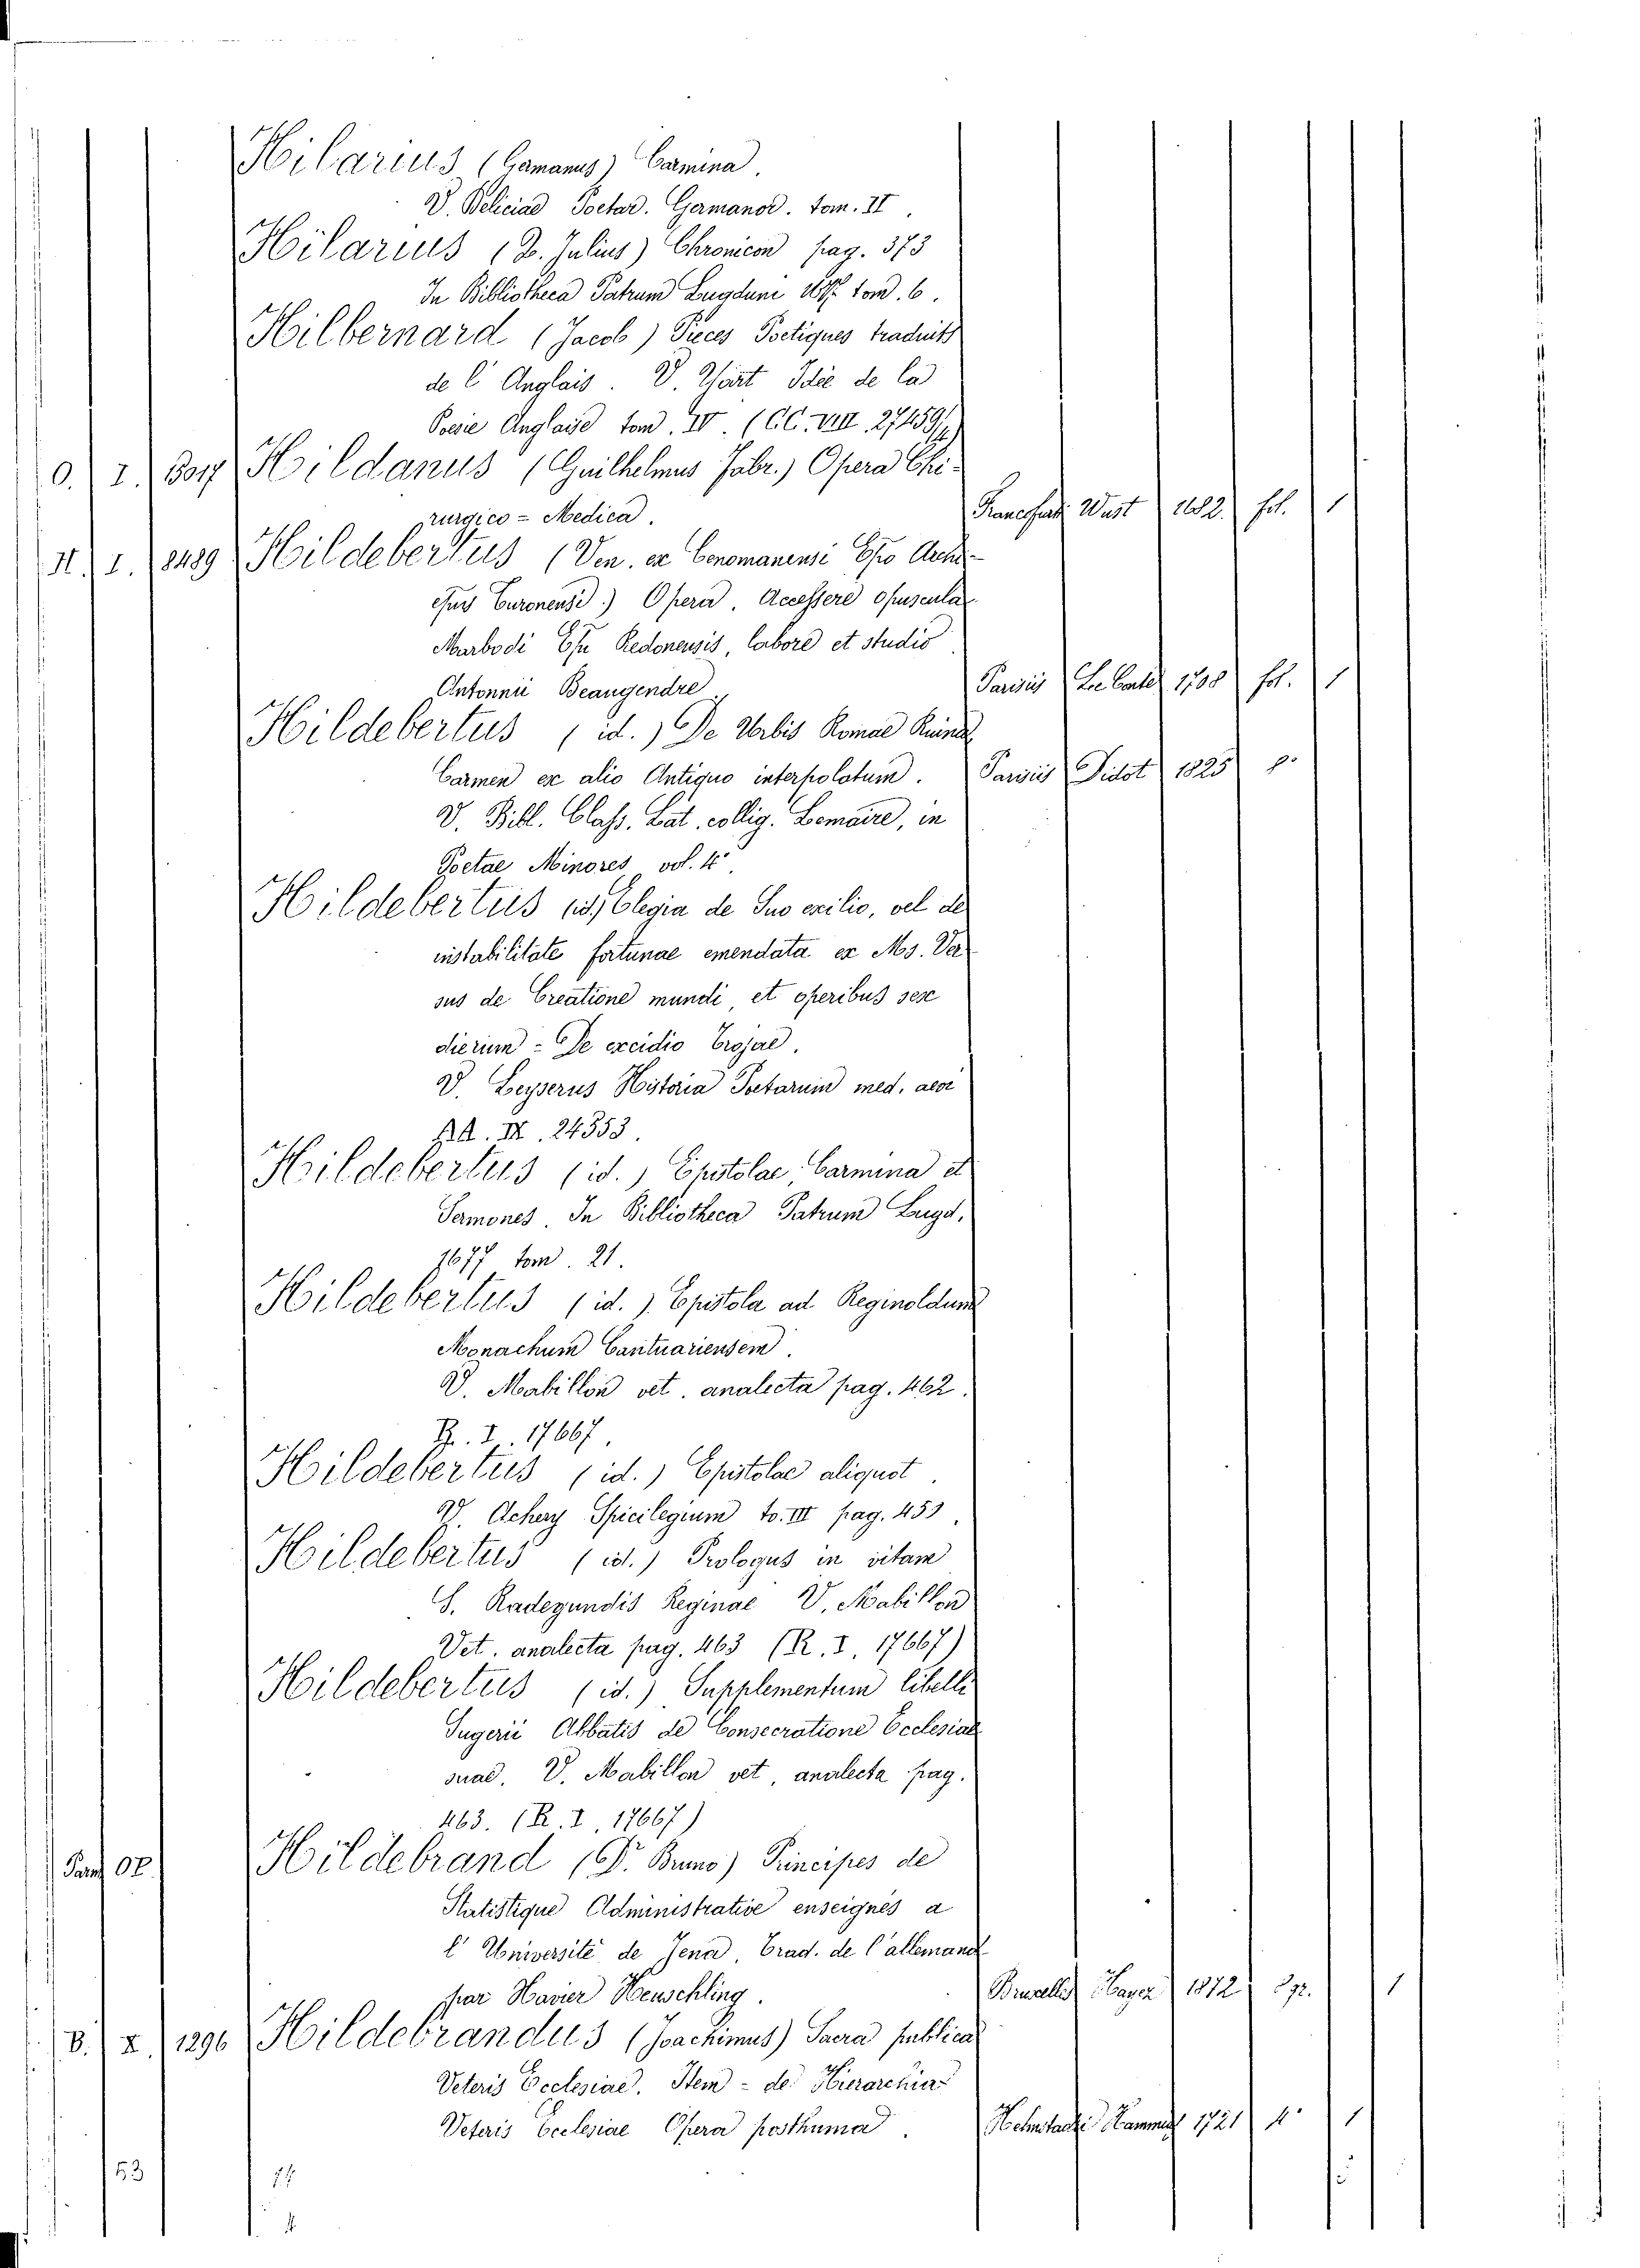 Hilarius (Germanus) Carmina.
V. Deliciae Poetar. Germanor. tom. II.
Hilarius (D. Julius) Chronicon pag. 373
In Bibliotheca Patrum Lugduni 1677 tom. 6.
Hilbernard (Jacob) Pieces Poetiques traduits
de l'Anglais. V. Yart Idée de la
Poesie Anglaise tom. IV. (CC. VIII. 27459/4)
O. I. Hildanus (Guilhelmus Fabr.) Opera Chi-
rurgico - Medica. Francfurti Wust 1682. fol. 1
H. I. 8489 Hildebertus (Ven. ex Cenomanensi Epo Archi-
epus Turonensi.) Opera, Accessere opuscula
Marbodi Epi Redonensis, labore et studio
Antonnii Beaugendre. Parisiis Le Conte 1708 fol. 1
Hildebertus (id.) De Urbis Romae Ruina
Carmen ex alio Antiquo interpolatum. Parisiis Didot 1825 8°
V. Bibl. Class. Lat. collig. Lemaire, in
Poetae Minores vol. 4°.
Hildebertus (id.) Elegia de Suo exilio, vel de
instabilitate fortunae emendata ex Ms. Ver
sus de Creatione mundi, et operibus sex
dierum - De excidio Trojae.
V. Leyserus Historia Poetarum med. aevi
AA. IX. 24353.
Hildebertus (id.) Epistolae, Carmina et
Sermones. In Bibliotheca Patrum Lugd.
1677 tom. 21.
Hildebertus (id.) Epistola ad Reginoldum
Monachum Cantuariensem.
V. Mabillon vet. analecta pag. 462.
R. I. 17667.
Hildebertus (id.) Epistolae aliquot.
V. Achery Spicilegium to. III pag. 453.
Hildebertus (id.) Prologus in vitam
S. Radegundis Reginae V. Mabillon
Vet. analecta pag. 463 (R. I. 17667)
Hildebertus (id.) Supplementum libelli
Sugerii Abbatis de Consecratione Ecclesiae
suae. V. Mabillon vet. analecta pag.
463. (R. I. 17667)
Hildebrand (Dr. Bruno) Principes de
Statistique Administrative enseignés a
l'Université de Jena, Trad. de l'allemand
par Xavier Heuschling. Bruxelles Mayer 1872 8gr. 1
B. X. 1296 Hildebrandus (Joachimus) Sacra publica
Veteris Ecclesiae. Item - de Hierarchia
Veteris Ecclesiae Opera posthuma. Helmstadii Hamm 1721 4° 1
53 14 5
4